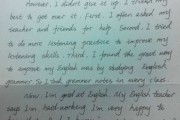 However, I didn't give it up. I tried my
best to get over it. First, I often asked my
teacher and friends for help. Second, I tried
to do more listening practice to improve my
listening skills. Third, I found the great way
to improve my English was by studying English
grammar. So I take grammar notes in every class.
Now I'm good at English. My English teacher
says I'm hard-working. I'm very happy to